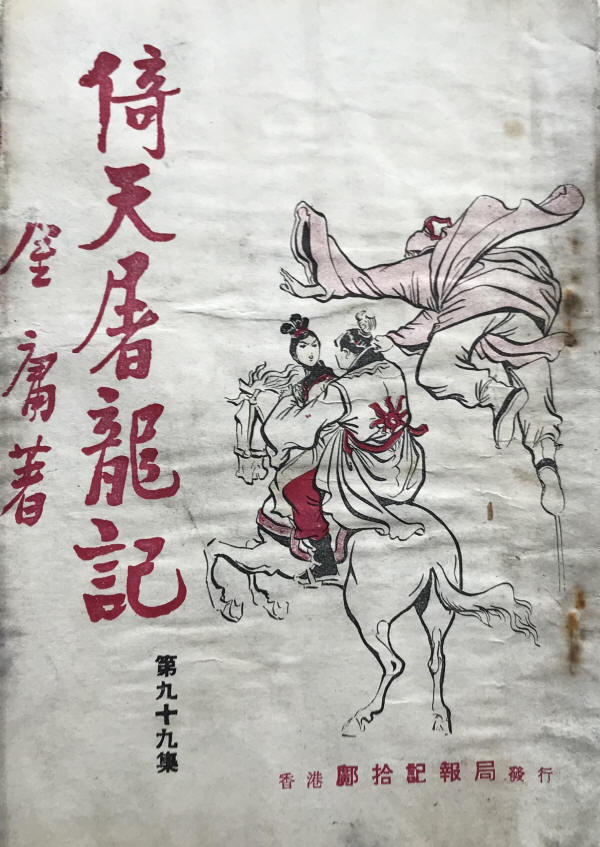 倚天屠龍記
金庸著
第九十九集
香港鄺拾記報局發行